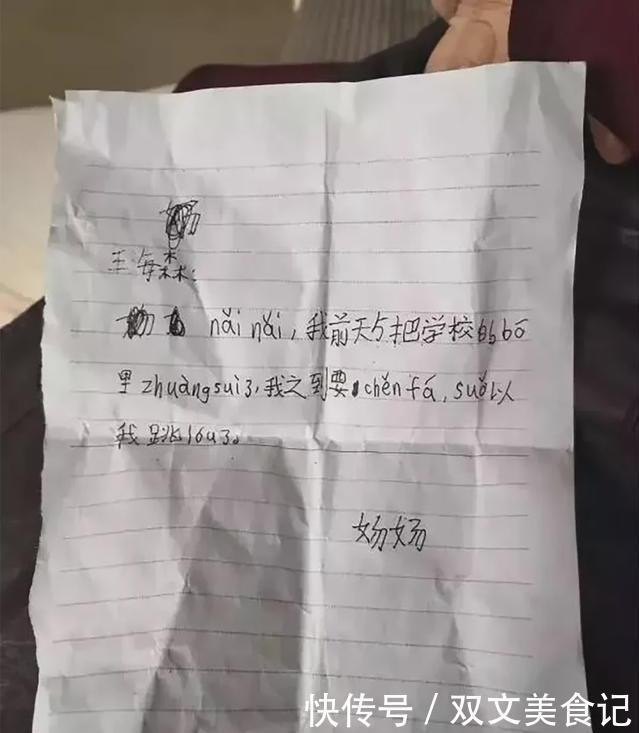 王每森:
nǎi nǎi, 我前天与把学校的bō
里zhuàngsuì3,我之到要chěnfá,suǒ以
我跳lóu3。
奶奶
快传号/双文美食记